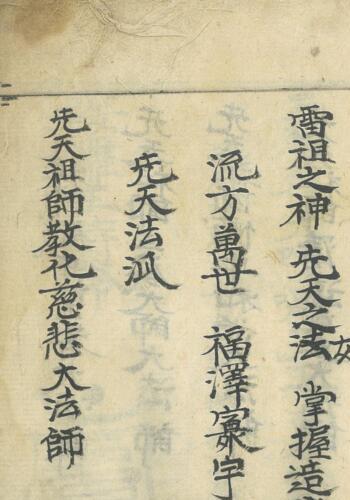 雷祖之神 先天之法 掌握造
流方萬世 福澤寰宇
先天法派
先天祖師教化慈悲大法師